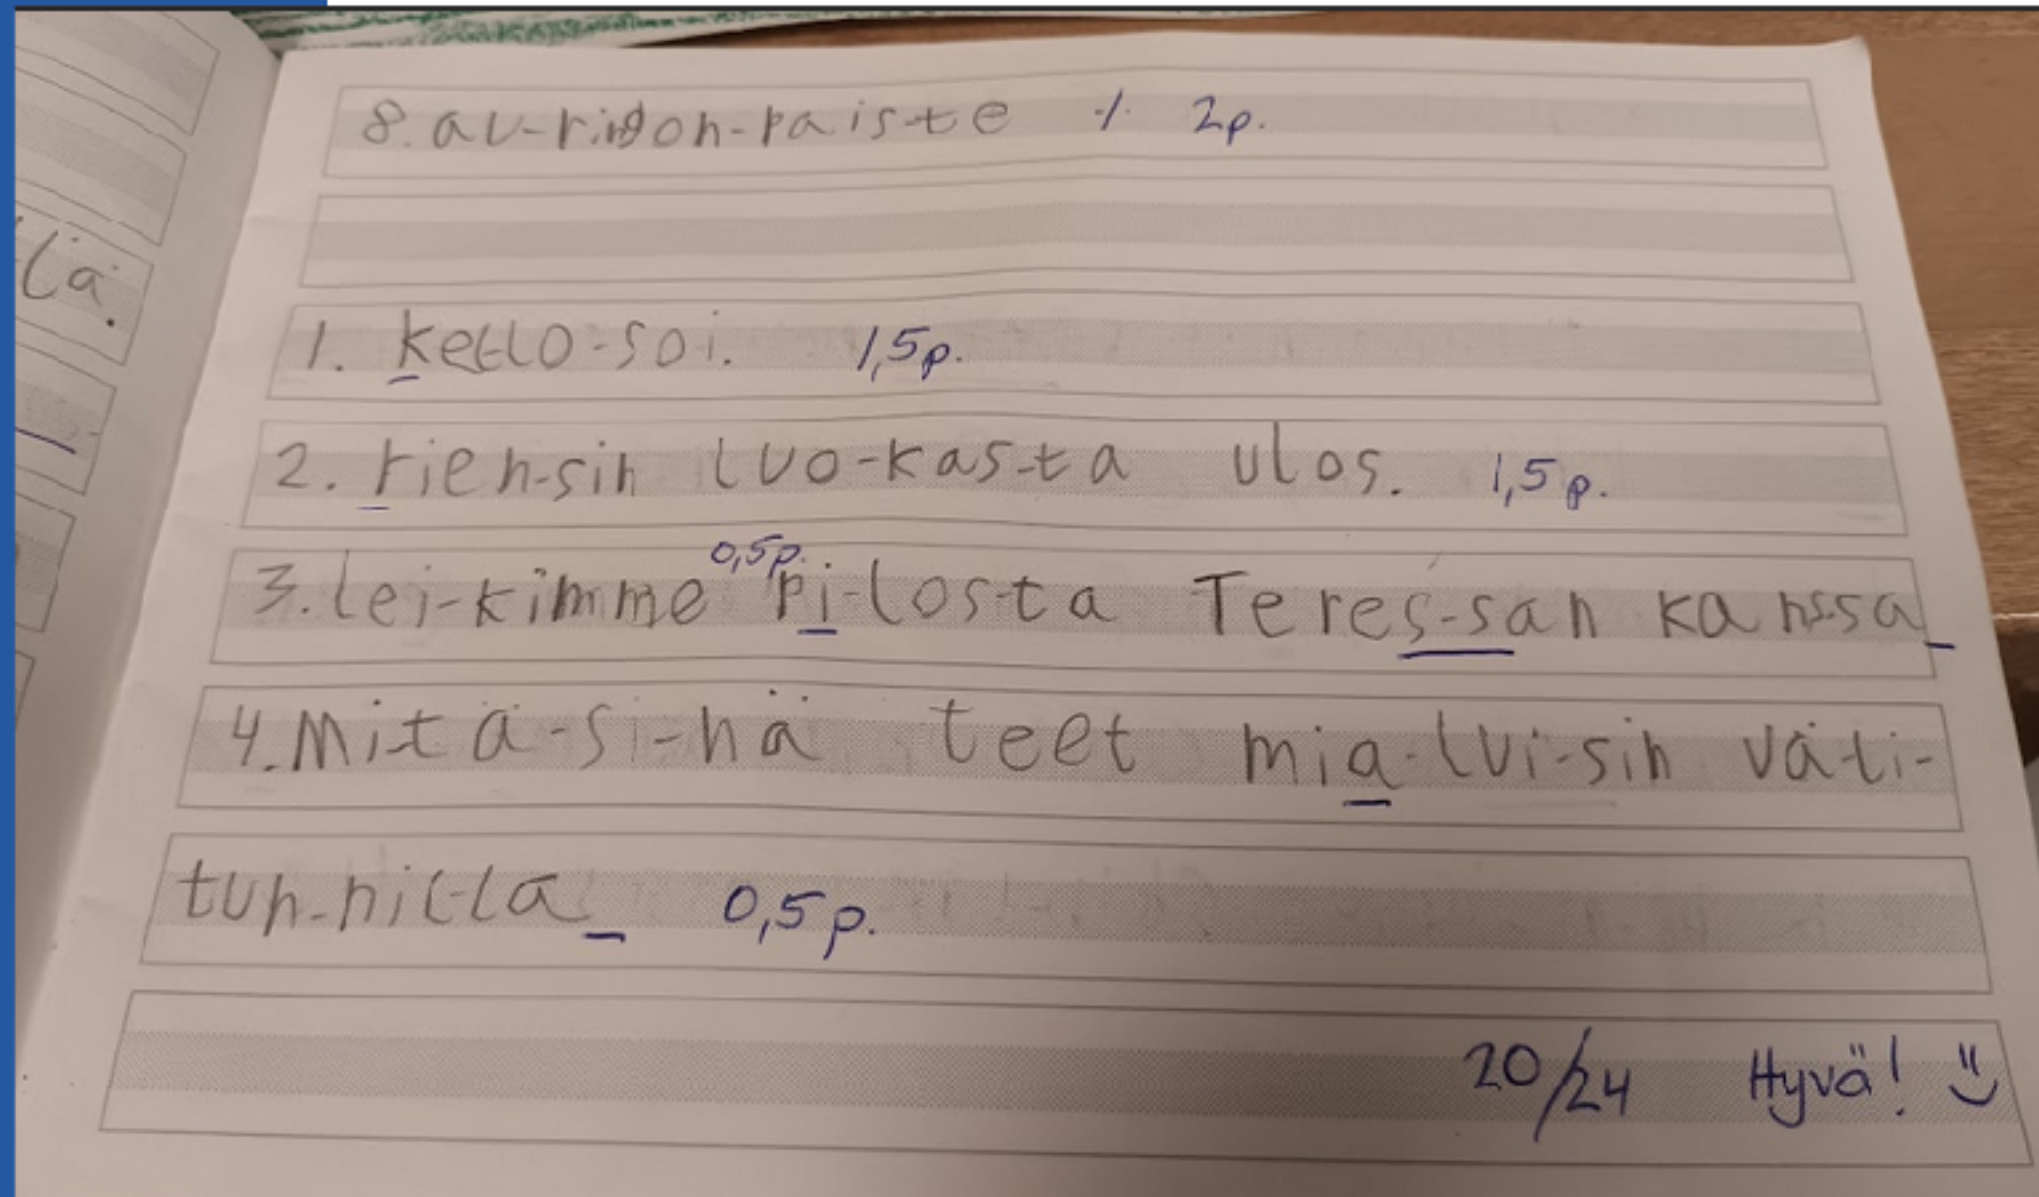 8. au-ringon-paiste ⁒ 2p.
lä.
1. kello-soi. 1,5p.
2. rien-sin luo-kas-ta ulos. 1,5p.
0,5p.
3. lei-kimme pi-los-ta Teres-san kans-sa
4. Mi-tä-si-nä teet mia-lui-sin vä-li-
tun-nil-la 0,5p.
20/24 Hyvä!